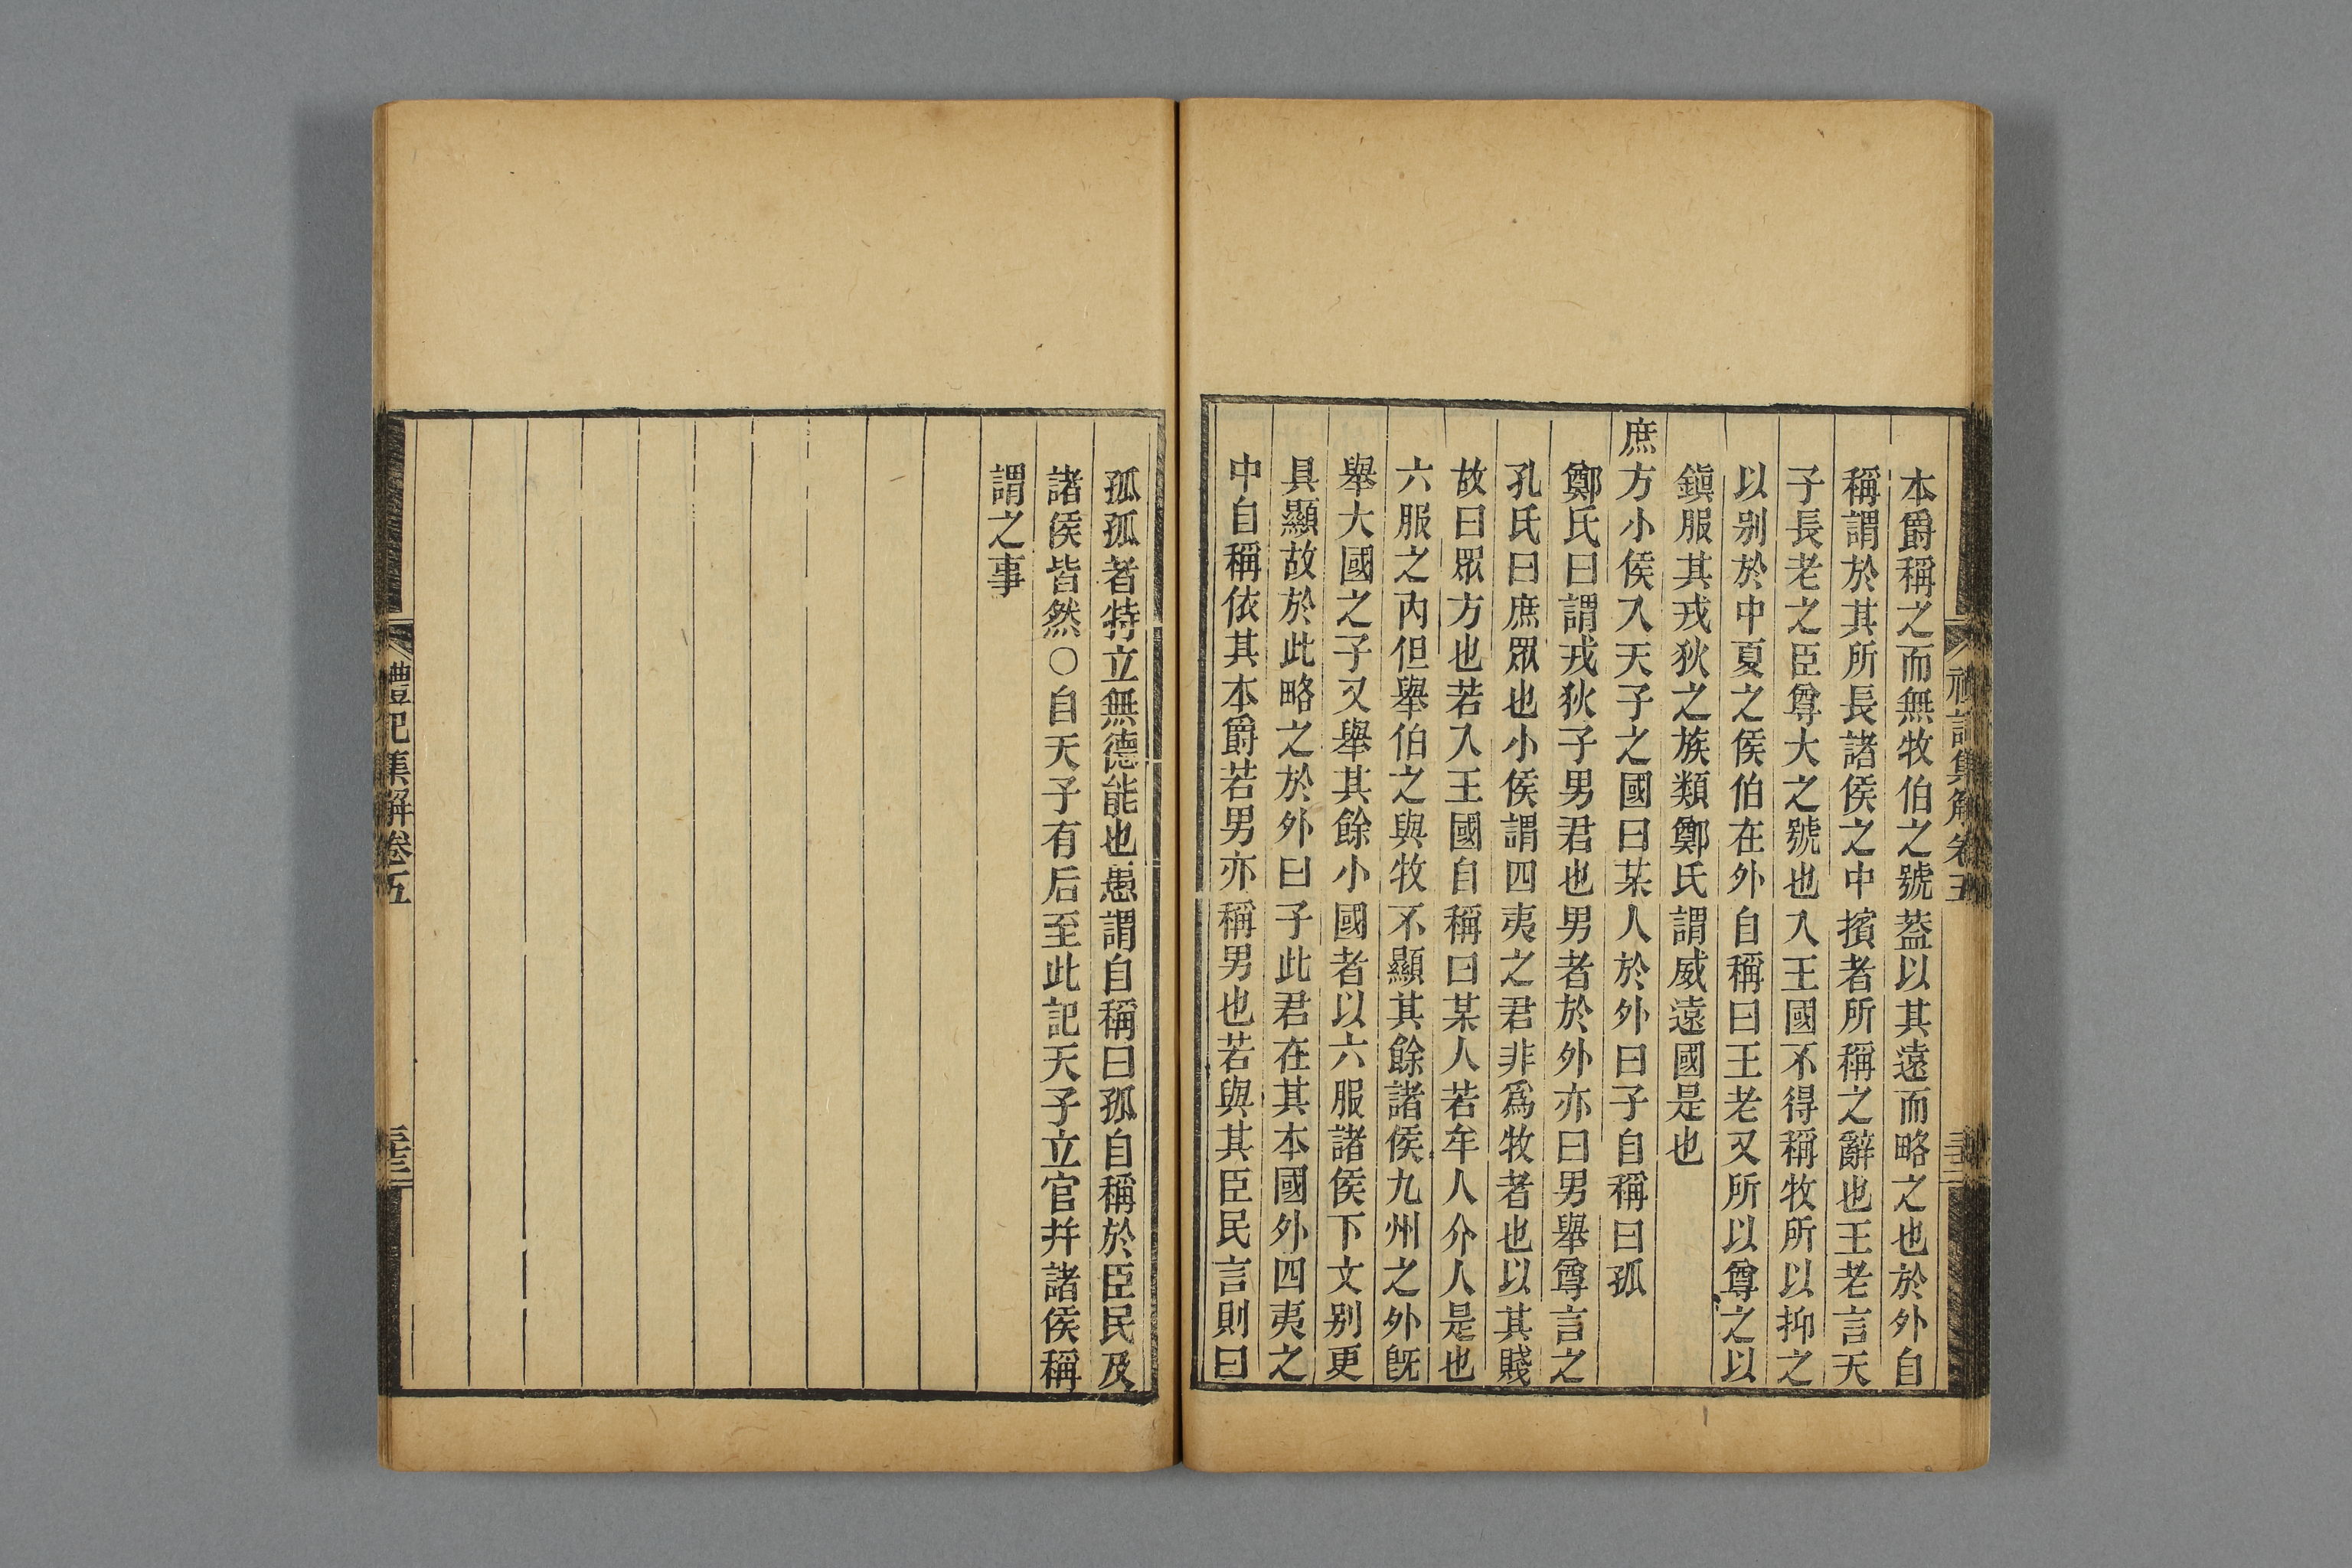 禮記集解卷五
本爵稱之而無牧伯之號葢以其遠而略之也於外自
稱謂於其所長諸侯之中擯者所稱之辭也王老言天
子長老之臣尊大之號也入王國不得稱牧所以抑之
以别於中夏之侯伯在外自稱曰王老又所以尊之以
鎭服其戎狄之族類鄭氏謂威遠國是也
庶方小侯入天子之國曰某人於外曰子自稱曰孤
鄭氏曰謂戎狄子男君也男者於外亦曰男舉尊言之
孔氏曰庶眾也小侯謂四夷之君非爲牧者也以其賤
故曰眾方也若入王國自稱曰某人若牟人介人是也
六服之內但舉伯之與牧不顯其餘諸侯九州之外旣
舉大國之子又舉其餘小國者以六服諸侯下文别更
具顯故於此略之於外曰子此君在其本國外四夷之
中自稱依其本爵若男亦稱男也若與其臣民言則曰
孤孤者特立無德能也愚謂自稱曰孤自稱於臣民及
諸侯皆然○自天子有后至此記天子立官幷諸侯稱
謂之事
禮記集解卷五